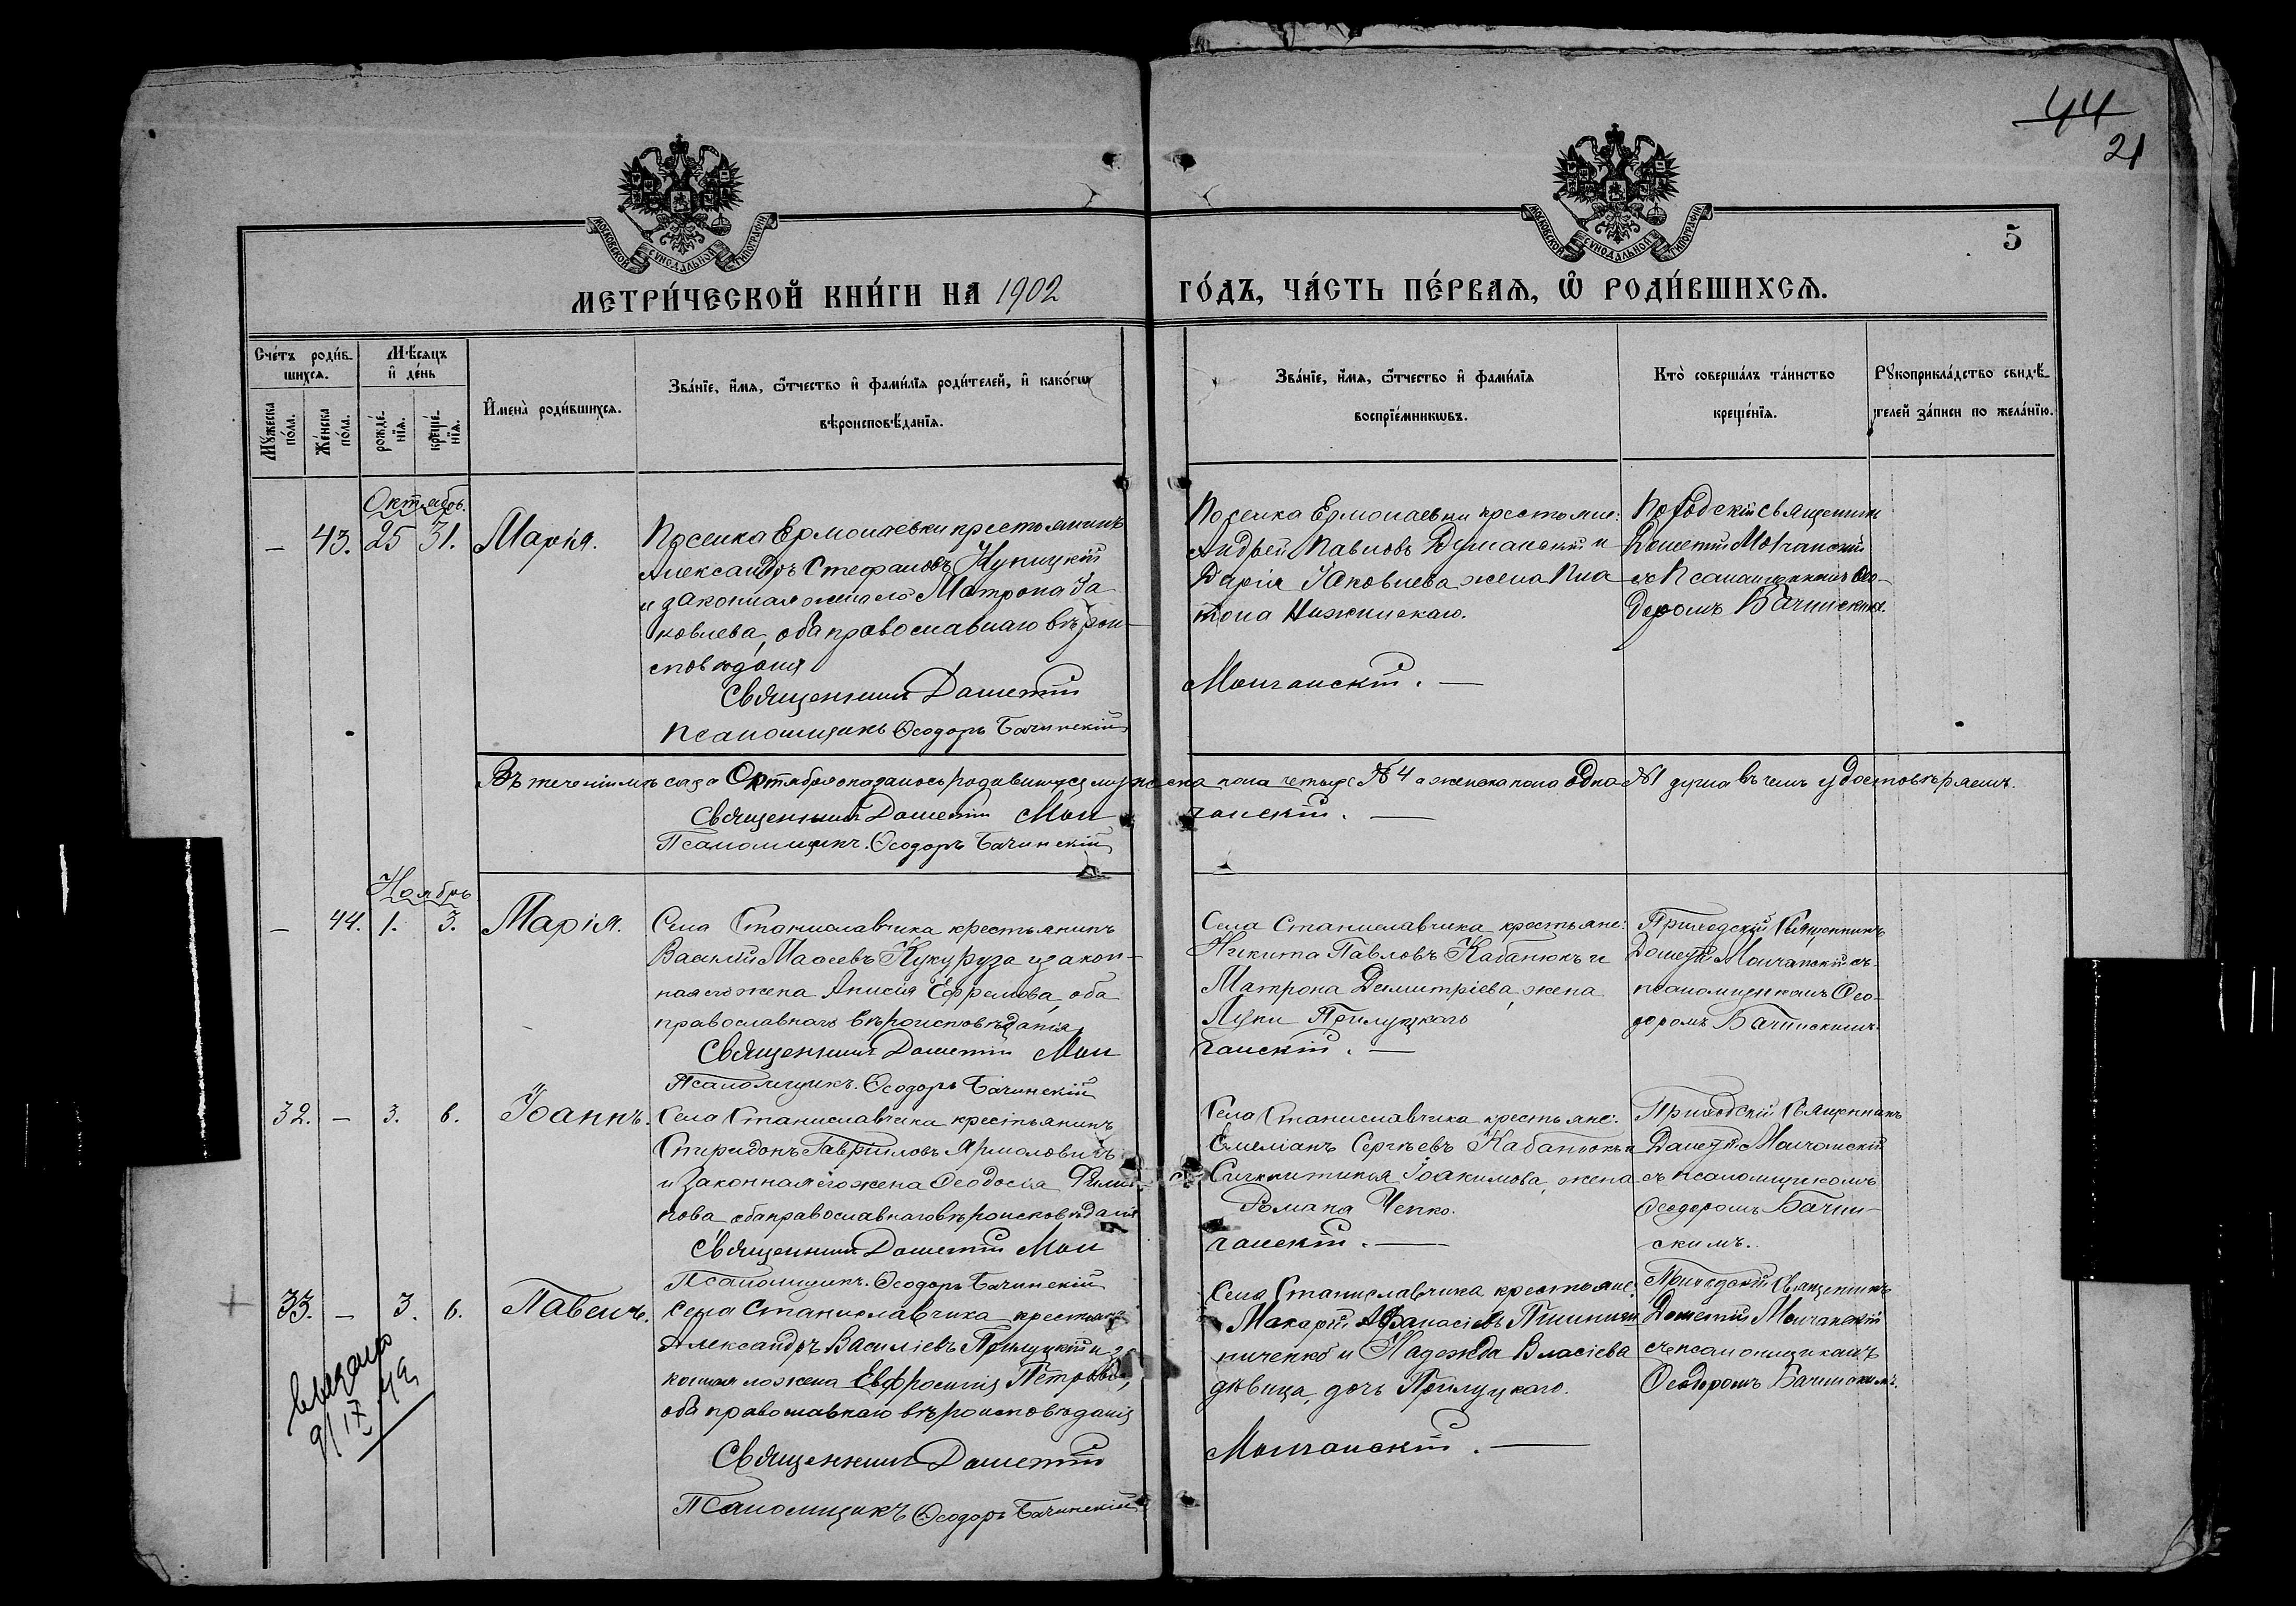 44
21
5
МОСКОВСКОЙ СѴНОДАЛЬНОЙ ТИПОГРАФІИ
МОСКОВСКОЙ СѴНОДАЛЬНОЙ ТИПОГРАФІИ
МЕТРИ́ЧЕСКОЙ КНИ́ГИ НА 1902 ГО́ДЪ, ЧА́СТЬ ПЕ́РВАѦ, Ѽ РОДИ́ВШИХСѦ.
Сче́тъ роди́в-
шихсѧ.
Мꙋжеска по́ла.
Же́нска по́ла.
Мѣ́сѧцъ и҆ де́нь
рожде́-нїѧ.
креще́-нїѧ.
И҆мена̀ роди́вшихсѧ.
Зва́нїе, и҆́мѧ, ѻ҆́тчество и҆ фами́лїѧ роди́телей, и҆ како́гѡ
вѣроисповѣ́данїѧ.
Зва́нїе, и҆́мѧ, ѻ҆́тчество и҆ фами́лїѧ
воспрїе́мникѡвъ.
Кто̀ соверша́лъ та́инство
креще́нїѧ.
Рꙋкоприкла́дство свидѣ́-
телей за́писи по жела́нїю.
Октябрь.
— 43. 25 31. Марія.
Поселка Ермолаевки крестьянинъ
Александръ Стефановъ Купицкій
и законная жена его Матрона Іа
ковлева, оба православнаго вѣрои-
сповѣданія
Священникъ Дометій
Псаломщикъ Ѳеодоръ Бачинскій
Поселка Ермолаевки крестьяне:
Андрей Павловъ Думанскій и
Дарія Іаковлева жена Пла
тона Нижинскаго.
Молчанскій. —
Приходскій священникъ
Дометій Молчанскій
съ Псаломщикомъ Ѳео-
доромъ Бачинскимъ.
Въ теченіи мѣсяца Октября оказалось родившихся мужеска пола четыре № 4 а женска пола одна №1 душа въ чемъ удостовѣряемъ.
Священникъ Дометій Молчанскій. —
Псаломщикъ. Ѳеодоръ Бачинскій
Ноябрь
— 44. 1. 3. Марія.
Села Станиславчика крестьянинъ
Василій Моѵсеевъ Кукуруза и закон-
ная его жена Анисія Ефремова, оба
православнаго вѣроисповѣданія,
Священникъ Дометій Молчанскій. —
Псаломщикъ. Ѳеодоръ Бачинскій
Села Станиславчика крестьяне:
Никита Павловъ Кабанюкъ и
Матрона Димитріева, жена
Луки Прилуцкаго
Приходскій Священникъ
Дометій Молчанскій съ
псаломщикомъ Ѳео-
доромъ Бачинскимъ.
32. — 3. 6. Іоаннъ.
Села Станиславчика крестьянинъ
Спиридонъ Гавріиловъ Ярмоловичъ
и законная его жена Ѳеодосія Филип
пова, оба православнаго вѣроисповѣданія
Священникъ Дометій Молчанскій. —
Псаломщикъ. Ѳеодоръ Бачинскій
Села Станиславчика крестьяне:
Емеліанъ Сергѣевъ Кабанюкъ и
Іоакимова, жена
Романа Чепко.
Приходскій Священникъ
Дометій Молчанскій
съ псаломщикомъ
Ѳеодоромъ Бачин-
скимъ.
33. — 3. 6. Павелъ.
Села Станиславчика крестьянинъ
Александръ Василіевъ Прилуцкій и за
конная его жена Евфросинія Петрова,
оба православнаго вѣроисповѣданія
Священникъ Дометій
Псаломщикъ Ѳеодоръ Бачинскій
Села Станиславчика крестьяне:
Макарій Аѳанасіевъ
и Надежда Власіева
дѣвица, дочь Прилуцкаго.
Молчанскій. —
Приходскій Священникъ
Дометій Молчанскій
съ псаломщикомъ
Ѳеодоромъ Бачинскимъ.
9/IX 49